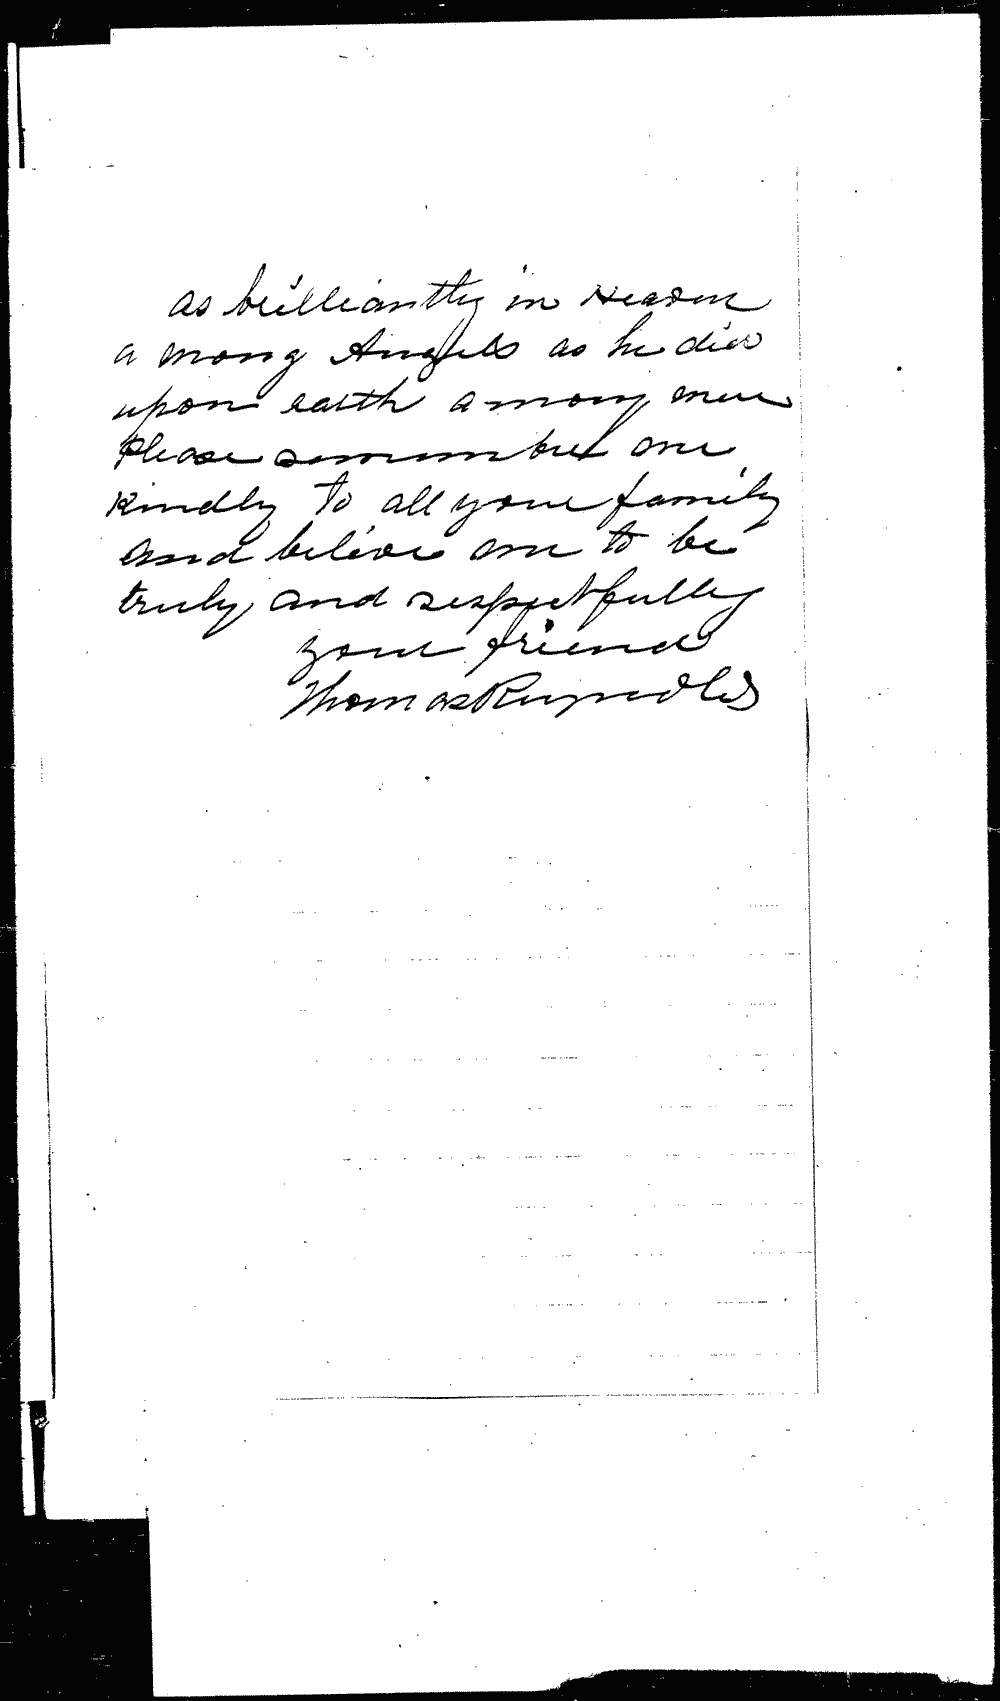 as brilliantly in Heaven
a mong Angels as he did
upon earth a mong men
Please remember me
kindly to all your family
and believe me to be
truly and respectfully
your friend
Thomas Reynolds